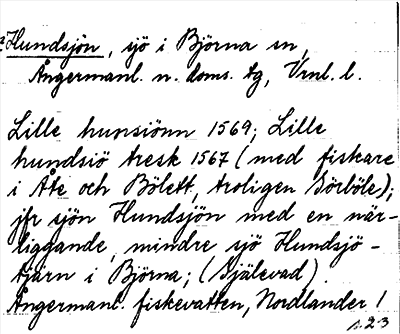 Hundsjön, sjö i Björna sn,
Ångermanl. n. doms. tg, Vrnl. l.
Lille hunsiönn 1569; Lille
hundsiö tresk 1567 (med fiskare
i Åte och Bölett, troligen Sörböle);
jfr sjön Hundsjön med en när-
liggande, mindre sjö Hundsjö-
tjärn i Björna; (Själevad).
Ångermanl. fiskevatten, Nordlander 1
s. 23